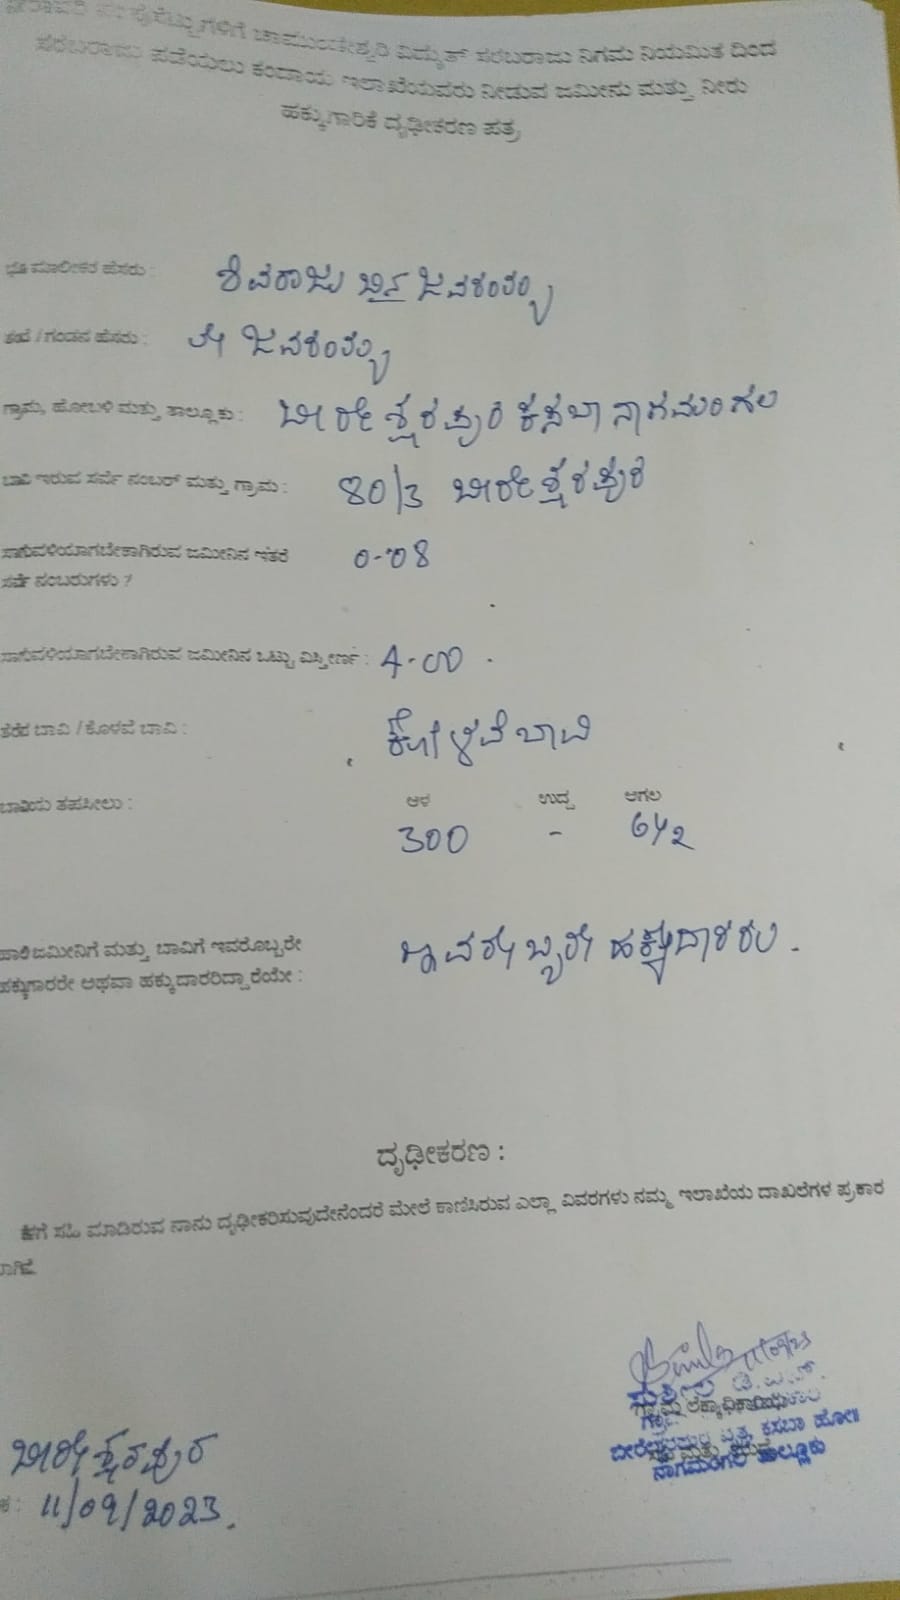 ನೀರಾವರಿ ಪಂಪ್‌ಸೆಟ್ಟುಗಳಿಗೆ ಚಾಮುಂಡೇಶ್ವರಿ ವಿದ್ಯುತ್ ಸರಬರಾಜು ನಿಗಮ ನಿಯಮಿತ ದಿಂದ
ಸರಬರಾಜು ಪಡೆಯಲು ಕಂದಾಯ ಇಲಾಖೆಯವರು ನೀಡುವ ಜಮೀನು ಮತ್ತು ನೀರು
ಹಕ್ಕುಗಾರಿಕೆ ದೃಢೀಕರಣ ಪತ್ರ
ಭೂ ಮಾಲೀಕರ ಹೆಸರು : ಶಿವರಾಜು ಬಿನ್ ಜವರಂತಯ್ಯ
ತಂದೆ / ಗಂಡನ ಹೆಸರು : ಲೇ ಜವರಂತಯ್ಯ
ಗ್ರಾಮ, ಹೋಬಳಿ ಮತ್ತು ತಾಲ್ಲೂಕು : ಬೀರೇಶ್ವರಪುರ ಕಸಬಾ ನಾಗಮಂಗಲ
ಬಾವಿ ಇರುವ ಸರ್ವೆ ನಂಬರ್ ಮತ್ತು ಗ್ರಾಮ : 80/3 ಬೀರೇಶ್ವರಪುರ
ಸಾಗುವಳಿಯಾಗಬೇಕಾಗಿರುವ ಜಮೀನಿನ ಇತರೆ 0-08
ಸರ್ವೆ ನಂಬರುಗಳು ?
ಸಾಗುವಳಿಯಾಗಬೇಕಾಗಿರುವ ಜಮೀನಿನ ಒಟ್ಟು ವಿಸ್ತೀರ್ಣ : 4-00
ತೆರೆದ ಬಾವಿ / ಕೊಳವೆ ಬಾವಿ : ಕೊಳವೆ ಬಾವಿ
ಬಾವಿಯ ತಪಸೀಲು : ಆಳ ಉದ್ದ ಅಗಲ
300 - 6½
ಹಾಲಿ ಜಮೀನಿಗೆ ಮತ್ತು ಬಾವಿಗೆ ಇವರೊಬ್ಬರೇ ಇವರೊಬ್ಬರೇ ಹಕ್ಕುದಾರರು.
ಹಕ್ಕುಗಾರರೇ ಅಥವಾ ಹಕ್ಕುದಾರರಿದ್ದಾರೆಯೇ :
ದೃಢೀಕರಣ :
ಕೆಳಗೆ ಸಹಿ ಮಾಡಿರುವ ನಾನು ದೃಢೀಕರಿಸುವುದೇನೆಂದರೆ ಮೇಲೆ ಕಾಣಿಸಿರುವ ಎಲ್ಲಾ ವಿವರಗಳು ನಮ್ಮ ಇಲಾಖೆಯ ದಾಖಲೆಗಳ ಪ್ರಕಾರ
ಗ್ರಾಮ ಲೆಕ್ಕಾಧಿಕಾರಿಯ
ವೃತ್ತ, ಕಸಬಾ ಹೋ॥
ನಾಗಮಂಗಲ ತಾಲ್ಲೂಕು
ಬೀರೇಶ್ವರಪುರ
11/09/2023.